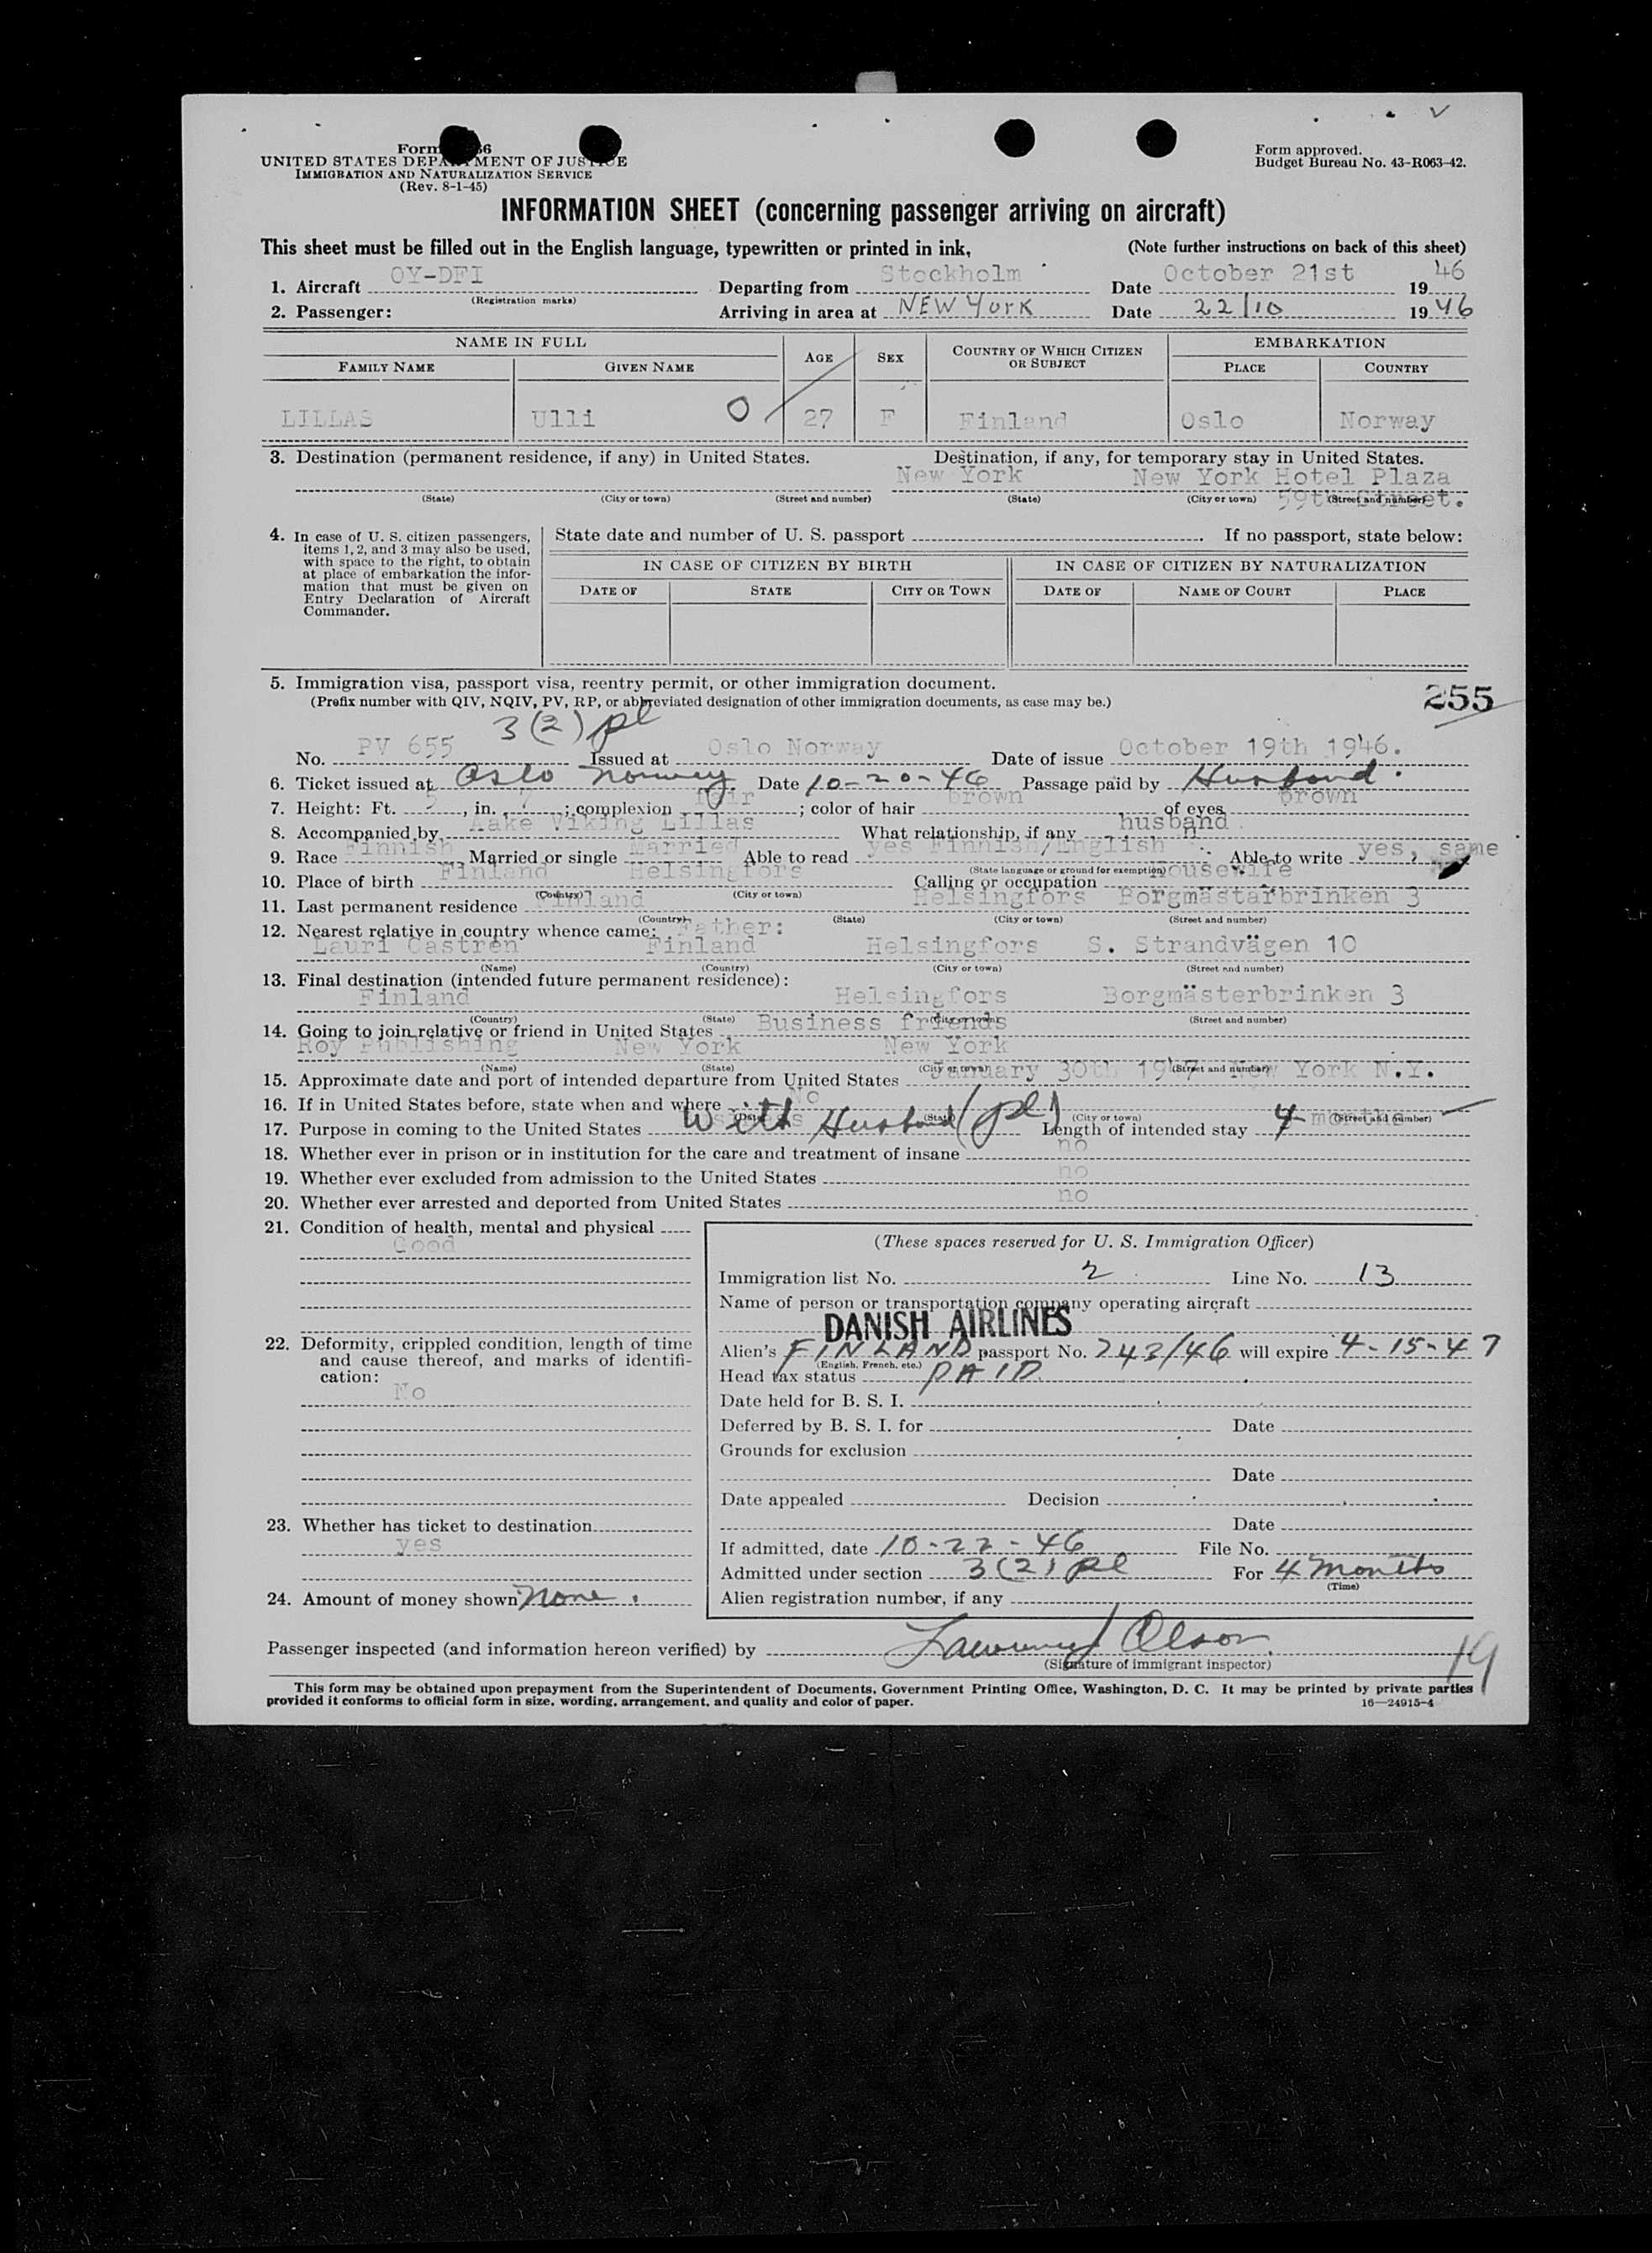 Form
UNITED STATES DEPARTMENT OF JUSTICE
IMMIGRATION AND NATURALIZATION SERVICE
(Rev. 8-1-45)
Form approved.
Budget Bureau No. 43-R063-42.
INFORMATION SHEET (concerning passenger arriving on aircraft)
This sheet must be filled out in the English language, typewritten or printed in ink, (Note further instructions on back of this sheet)
1. Aircraft OY-DFI Departing from Stockholm Date October 21st 1946
(Registration marks)
2. Passenger: Arriving in area at NEW YORK Date 22/10 1946
NAME IN FULL AGE SEX COUNTRY OF WHICH CITIZEN OR SUBJECT EMBARKATION
FAMILY NAME GIVEN NAME PLACE COUNTRY
LILLAS Ulli O 27 F Finland Oslo Norway
3. Destination (permanent residence, if any) in United States. Destination, if any, for temporary stay in United States.
New York New York Hotel Plaza
(State) (City or town) (Street and number) (State) (City or town) (Street and number)
59th Street.
4. In case of U. S. citizen passengers, items 1, 2, and 3 may also be used, with space to the right, to obtain at place of embarkation the information that must be given on Entry Declaration of Aircraft Commander.
State date and number of U. S. passport If no passport, state below:
IN CASE OF CITIZEN BY BIRTH IN CASE OF CITIZEN BY NATURALIZATION
DATE OF STATE CITY OR TOWN DATE OF NAME OF COURT PLACE
5. Immigration visa, passport visa, reentry permit, or other immigration document.
(Prefix number with QIV, NQIV, PV, RP, or abbreviated designation of other immigration documents, as case may be.)
255
3(2) pl
No. PV 655 Issued at Oslo Norway Date of issue October 19th 1946.
6. Ticket issued at Oslo Norway Date 10-20-46 Passage paid by Husband.
7. Height: Ft. 5, in. 7; complexion fair; color of hair brown of eyes brown
8. Accompanied by Aake Viking Lillas What relationship, if any husband
9. Race Finnish Married or single Married Able to read yes Finnish/English Able to write yes, same
(State language or ground for exemption)
10. Place of birth Finland Helsingfors Calling or occupation Housewife
(Country) (City or town)
11. Last permanent residence Finland Helsingfors Borgmästarbrinken 3
(Country) (State) (City or town) (Street and number)
12. Nearest relative in country whence came: Father:
Lauri Castrén Finland Helsingfors S. Strandvägen 10
(Name) (Country) (City or town) (Street and number)
13. Final destination (intended future permanent residence):
Finland Helsingfors Borgmästerbrinken 3
(Country) (State) (City or town) (Street and number)
14. Going to join relative or friend in United States Business friends
Roy Publishing New York New York
(Name) (State) (City or town) (Street and number)
15. Approximate date and port of intended departure from United States January 30th 1947 New York N.Y.
16. If in United States before, state when and where No
(Date) (State) (City or town) (Street and number)
17. Purpose in coming to the United States With Husband (pl) Length of intended stay 4 months
18. Whether ever in prison or in institution for the care and treatment of insane no
19. Whether ever excluded from admission to the United States no
20. Whether ever arrested and deported from United States no
21. Condition of health, mental and physical
Good
22. Deformity, crippled condition, length of time and cause thereof, and marks of identification:
No
23. Whether has ticket to destination
yes
24. Amount of money shown None.
(These spaces reserved for U. S. Immigration Officer)
Immigration list No. 2 Line No. 13
Name of person or transportation company operating aircraft
DANISH AIRLINES
Alien's FINLAND passport No. 243/46 will expire 4-15-47
(English, French, etc.)
Head tax status PAID
Date held for B. S. I.
Deferred by B. S. I. for Date
Grounds for exclusion
Date
Date appealed Decision
Date
If admitted, date 10-22-46 File No.
Admitted under section 3(2) pl For 4 Months
(Time)
Alien registration number, if any
Passenger inspected (and information hereon verified) by Olson
(Signature of immigrant inspector)
19
This form may be obtained upon prepayment from the Superintendent of Documents, Government Printing Office, Washington, D. C. It may be printed by private parties
provided it conforms to official form in size, wording, arrangement, and quality and color of paper. 16—24915-4